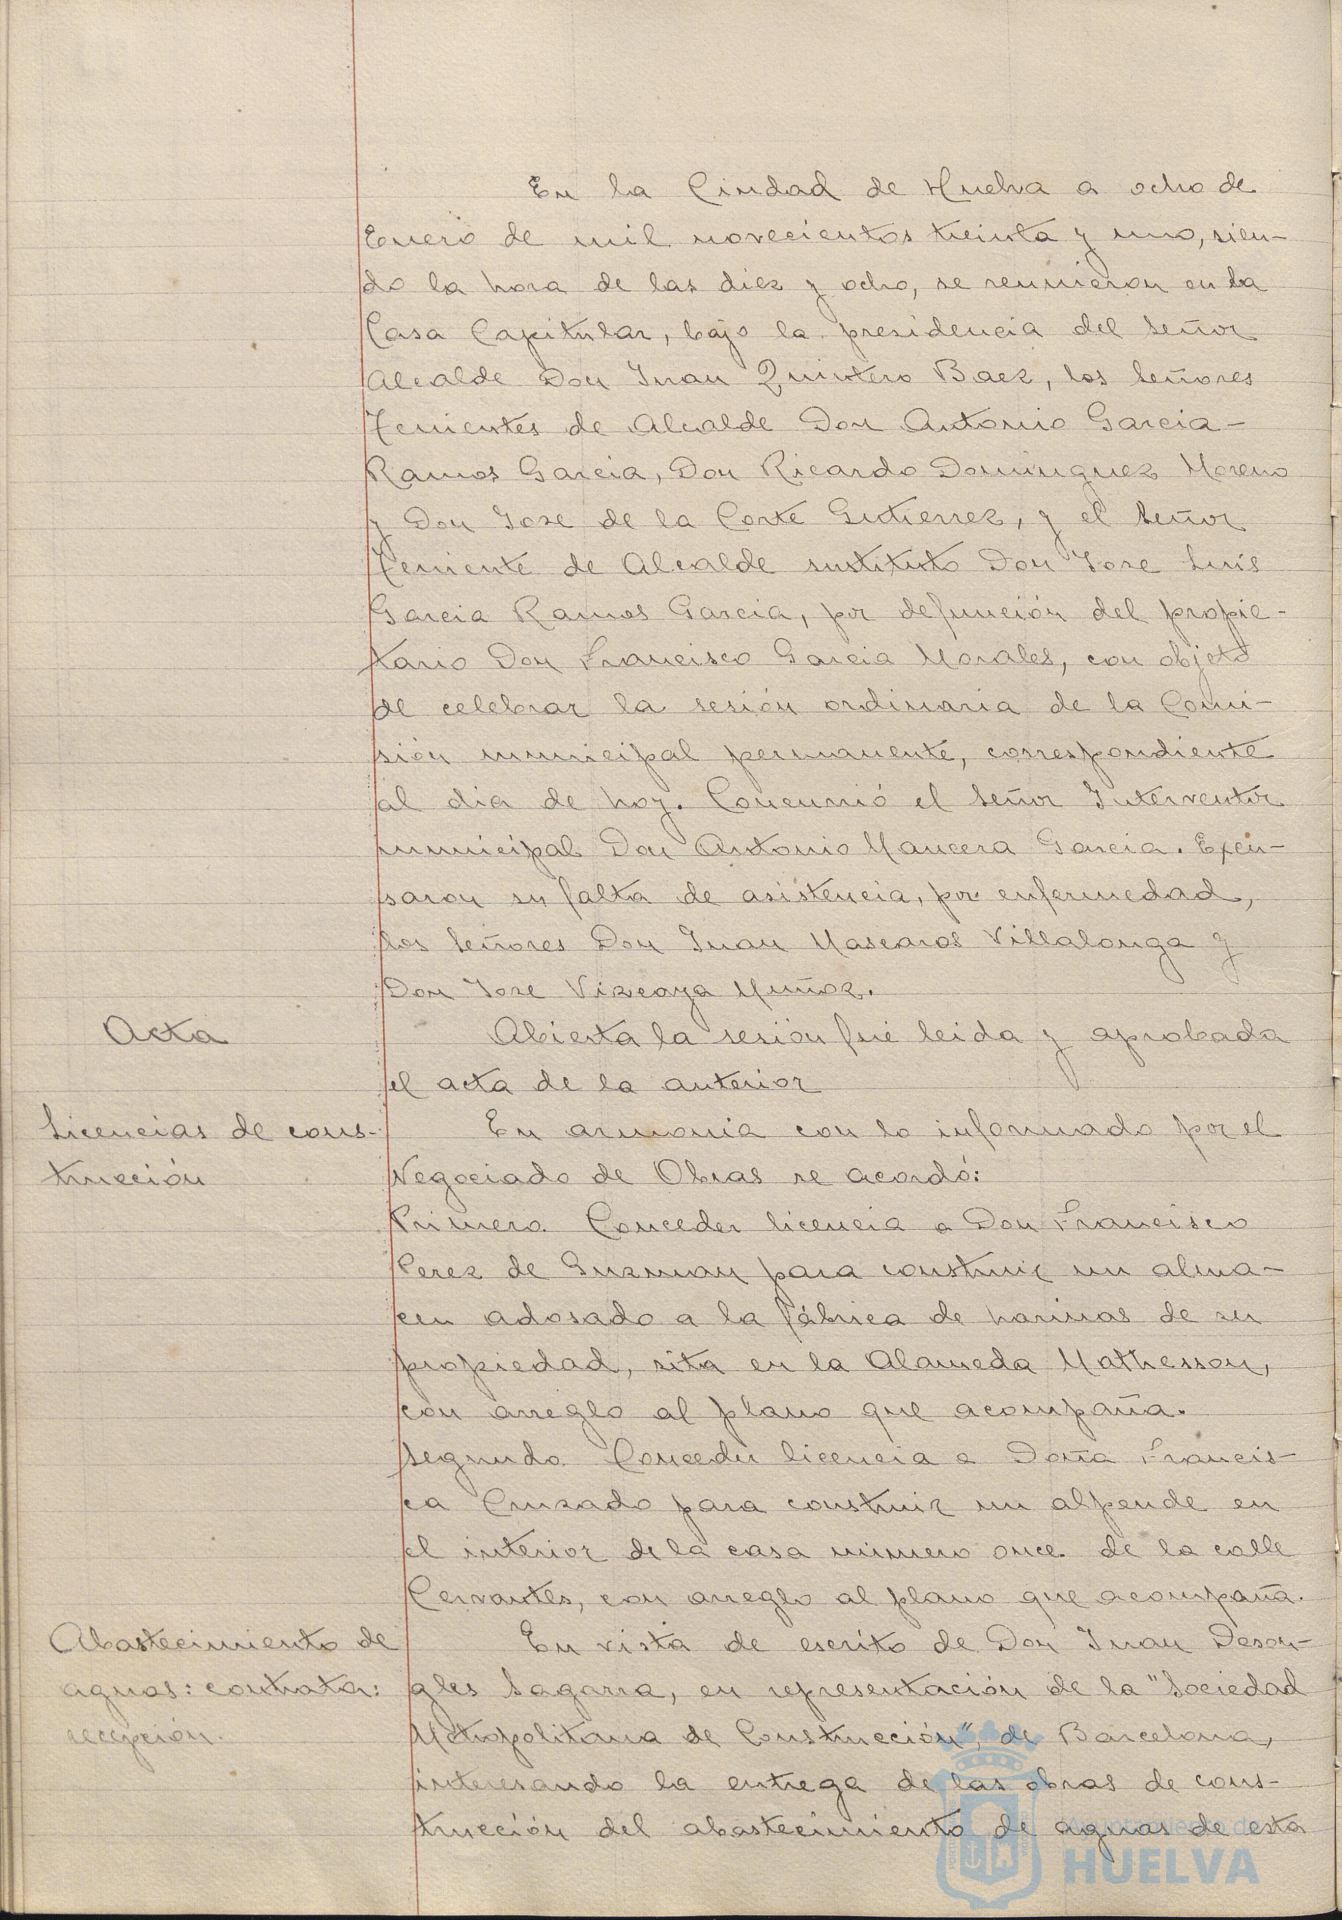 En la Ciudad de Huelva a ocho de
Enero de mil novecientos treinta y uno, sien-
do la hora de las diez y ocho, se reunieron en la
Casa Capitular, bajo la presidencia del Señor
Alcalde Don Juan Quintero Baez, los Señores
Tenientes de Alcalde Don Antonio Garcia-
Ramos Garcia, Don Ricardo Dominguez Moreno
y Don Jose de la Corte Gutierrez, y el Señor
Teniente de Alcalde sustituto Don Jose Luís
Garcia Ramos Garcia, por defunción del propie-
tario Don Francisco Garcia Morales, con objeto
de celebrar la sesión ordinaria de la Comi-
sión municipal permanente, correspondiente
al dia de hoy. Concurrió el Señor Interventor
municipal Don Antonio Mancera Garcia. Excu-
saron su falta de asistencia, por enfermedad,
los Señores Don Juan Mascaros Villalonga y
Don Jose Vizcaya Muñoz.
Acta
Abierta la sesión fué leida y aprobada
el acta de la anterior
Licencias de cons-
trucción
En armonia con lo informado por el
Negociado de Obras se acordó:
Primero. Conceder licencia a Don Francisco
Perez de Guzman para construir un alma-
cen adosado a la fábrica de harinas de su
propiedad, sita en la Alameda Mathesson,
con arreglo al plano que acompaña.
Segundo. Conceder licencia a Doña Francis-
ca Cruzado para construir un alpende en
el interior de la casa número once de la calle
Cervantes, con arreglo al plano que acompaña.
Abastecimiento de
aguas: contrata:
recepción.
En vista de escrito de Don Juan Deson-
gles Sagarra, en representación de la "Sociedad
Metropolitana de Construcción", de Barcelona,
interesando la entrega de las obras de cons-
trucción del abastecimiento de aguas de esta
Ayuntamiento de
HUELVA